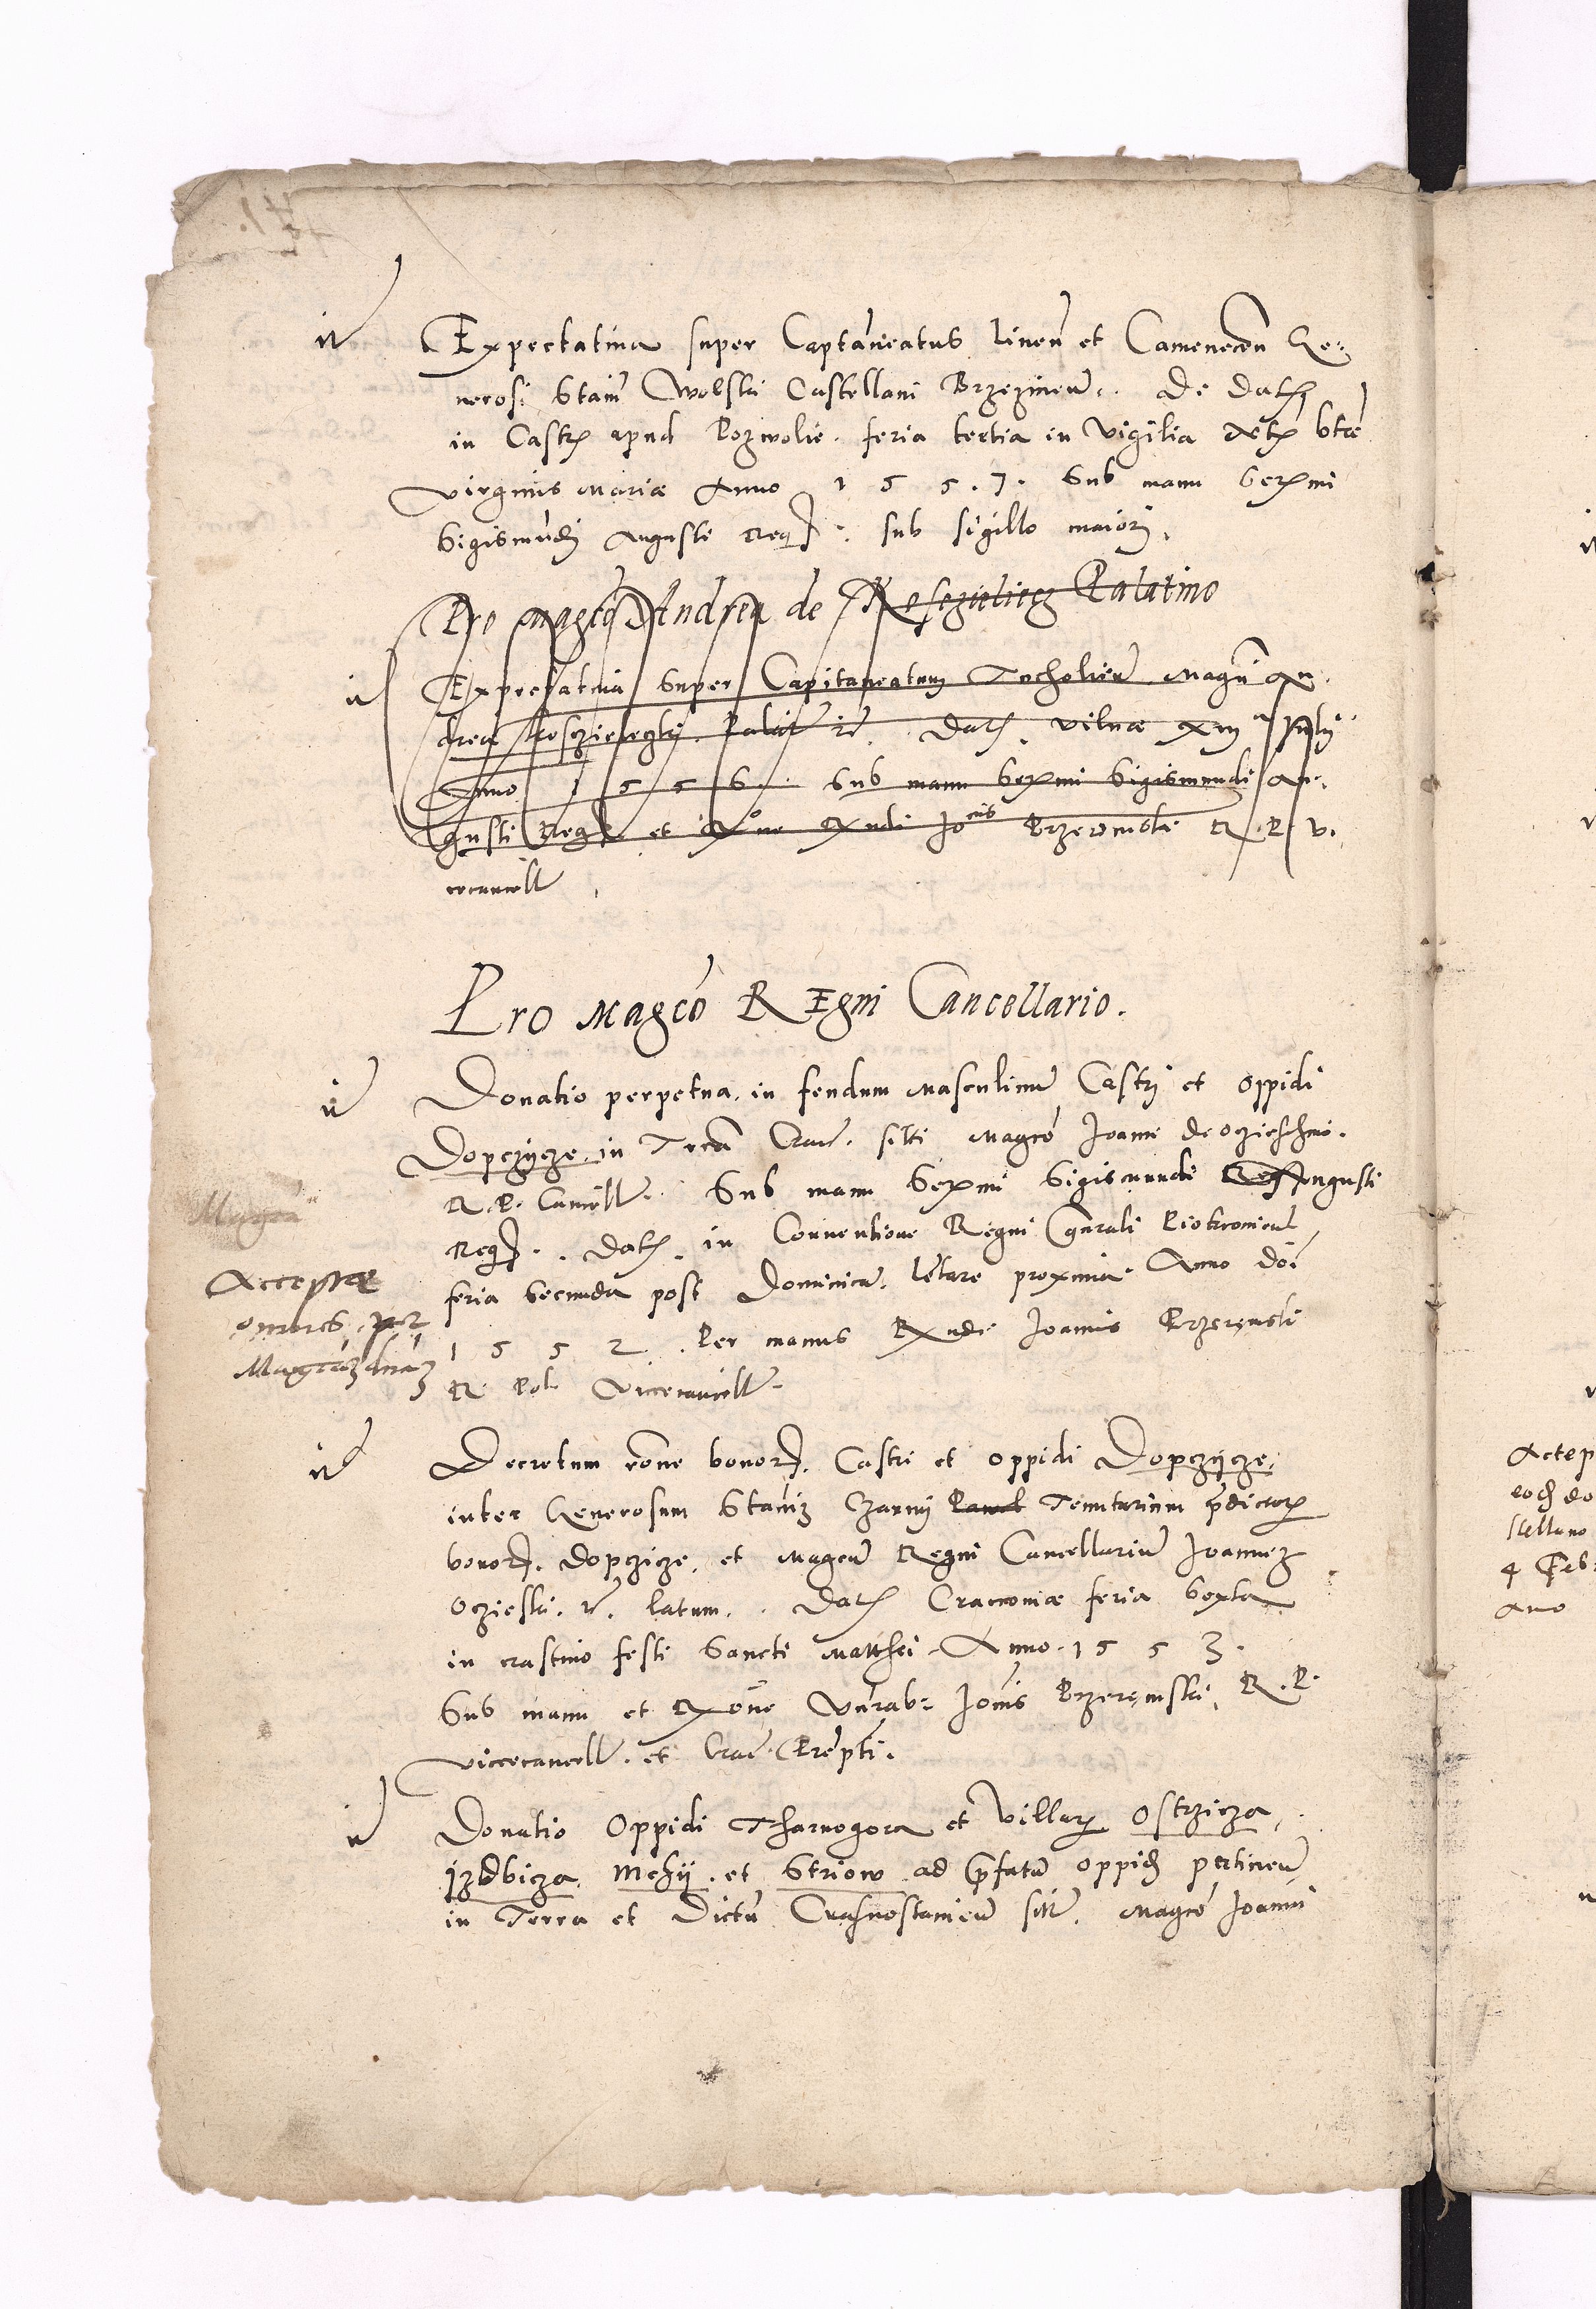 it Expectativa super Captaneatus Liuen̄ et Camenecen̄ Ge-
nerosi Stain̄ Wolski Castellani Brzezinen̄. De Dat
in Castris apud Pozwolie. feria tertia in Vigilia btae
virginis Mariæ Anno 1 5 5 . 7 . Sub manu Serx̄mi
Sigismūdi Augusti Regs . sub sigillo maiori.
Pro Magco Andrea de Kosczieliecz Palatino
it Expectativa Super Capitaneatum Tucholien̄ Magci An-
dreæ Kosczieleczki Dat. Vilnæ Julij
Anno 1 5 5 6 . Sub manu Serx̄mi Sigismundi Au-
gusti Regs et Rx̄ndi Jo Przerembski R. P. v.
cecancell
Pro Magco REgni Cancellario.
it Donatio perpetua in feudum Masculinum Castri et Oppidi
Dopczycze in Terra Crac. siti Magco Joanni de oczieschino.
R. P. Cancell. Sub manu Serx̄mi Sigismundi Reg Augusti
Regs . Dat. in Conventione Regni Gn̄rali Piotrcovien̄
feria Secunda post Dominicam Letare proxima Anno doi
1 5 5 2 . Per manus Rx̄ndi Joannis Przerembski
R. Pol. Vicecancell.
Magco
Acceptæ
omnes per
Magcuz dnuz
it Decretum rōne bonor. Castri et oppidi Dopczycze
inter Generosum Stan̄uz Czarny Tenutarium p̄dictor
bonor. Dopczicze. et Magcum Regni Cancellarium Joannez
Oczieski. etc. latum. Dat Cracoviæ feria Sexta
in crastino festi Sancti Matthei Anno 1 5 5 3 .
Sub manu et Rx̄one Vn̄rab. Joān̄is Przerembski R. P.
Vicecancell. et Crac. Præpti.
it Donatio Oppidi Tharnogora et Villar Ostrzicza,
jzdbicza Mchy . et Striow ad p̄fatum oppid pertinen̄
in Terra et Dictu Crasnostavien̄ sitt. Magco Joanni
Actep
stellano
4 Feb
Ano